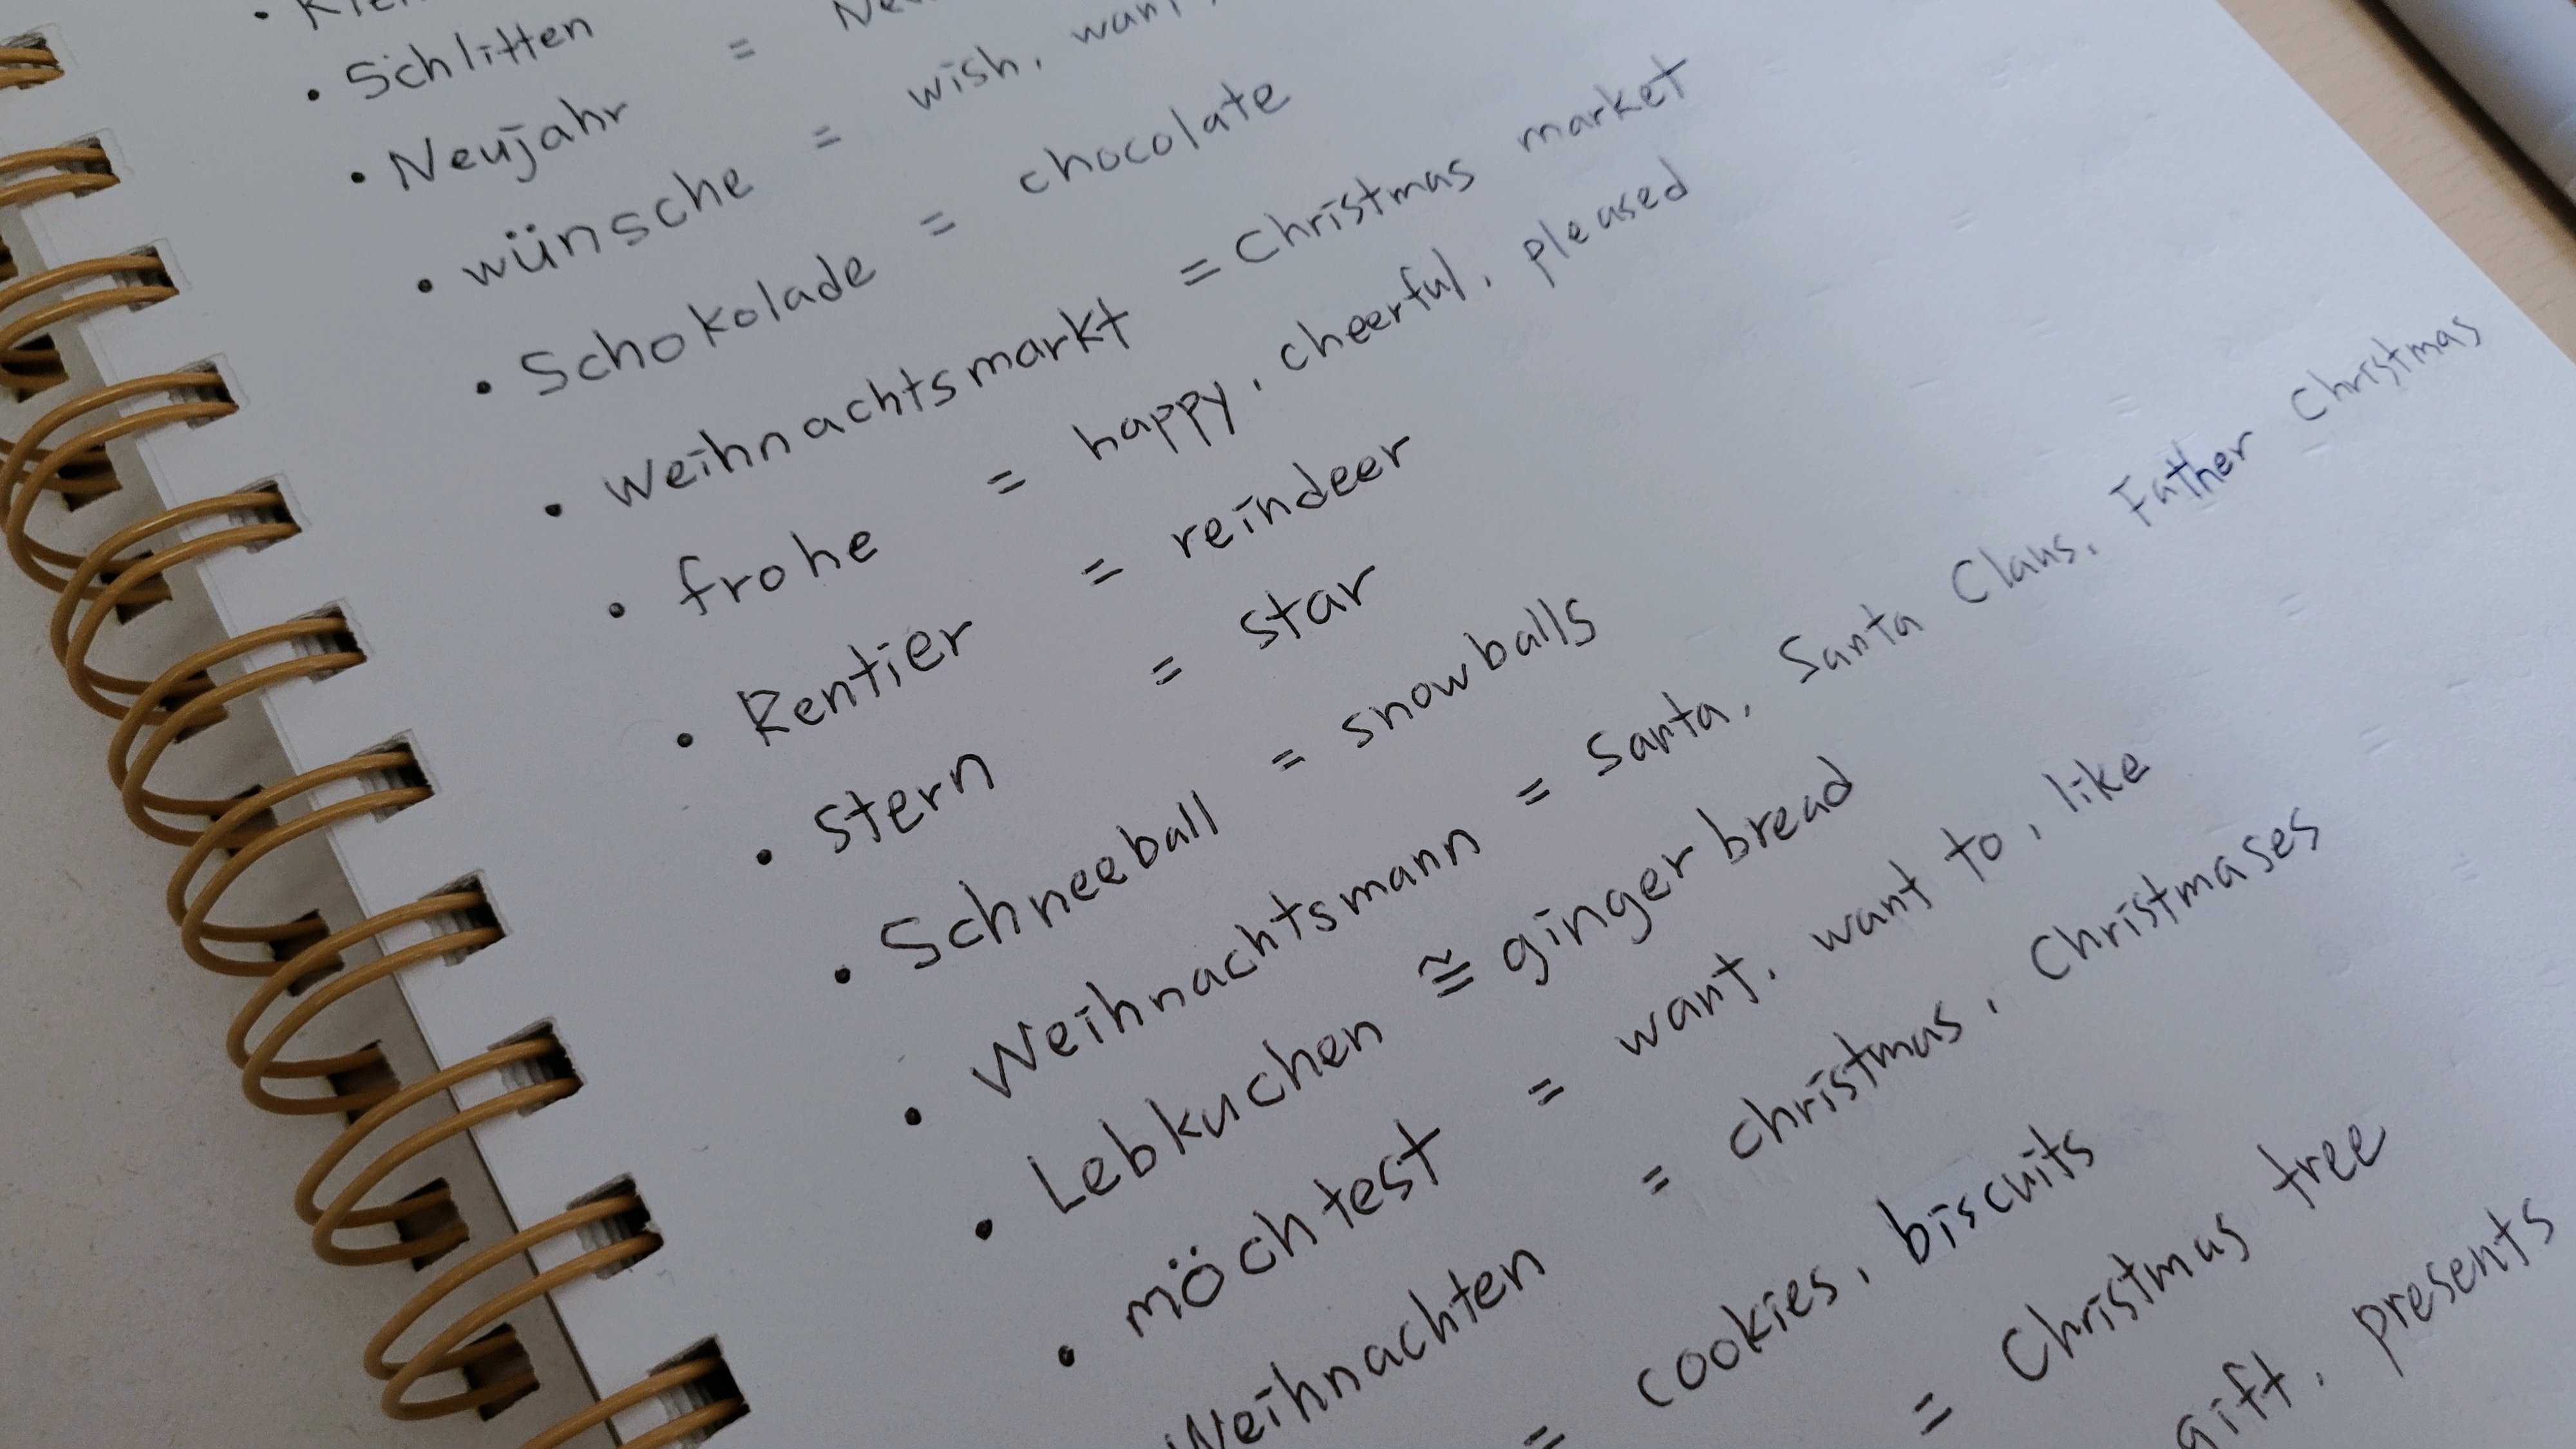 • Schlitten
• Neujahr =
• wünsche = wish, want,
• Schokolade = chocolate
• Weihnachtsmarkt = Christmas market
• frohe = happy, cheerful, pleased
• Rentier = reindeer
• Stern = star
• Schneeball = snowballs
• Weihnachtsmann = Santa, Santa Claus, Father Christmas
• Lebkuchen ≅ gingerbread
• möchtest = want, want to, like
Weihnachten = christmas, Christmases
= cookies, biscuits
= Christmas tree
gift, presents